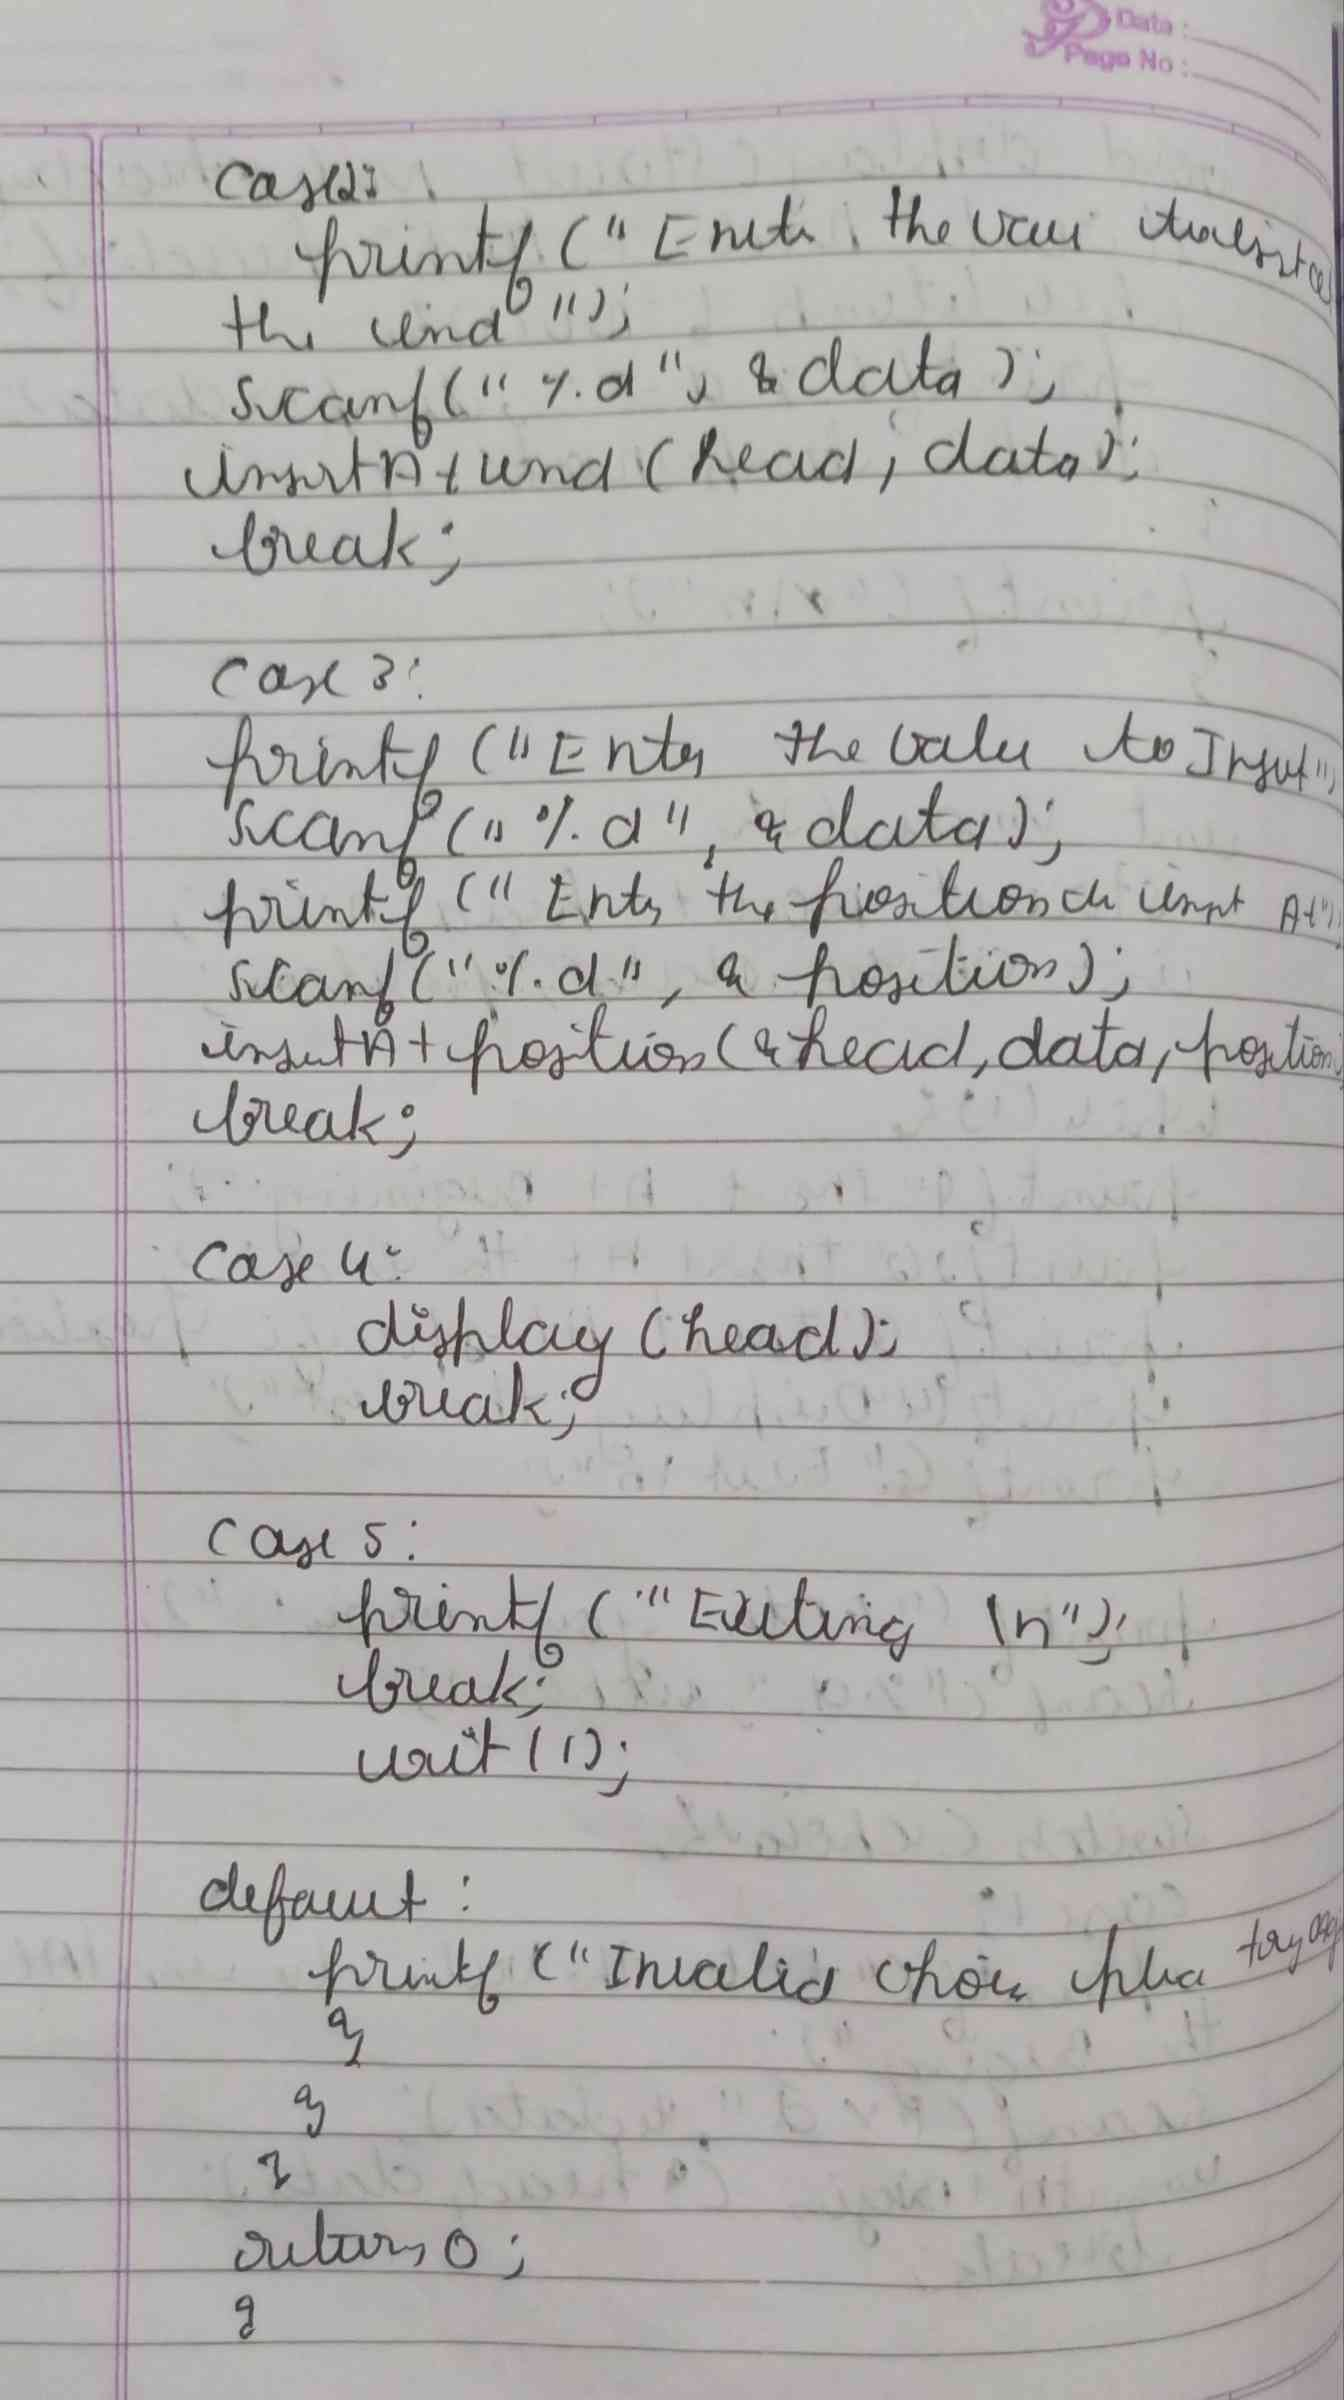 Data :
Page No :
case 2:
printf (" Enter the value to insert at
the end ");
scanf(" %d ", & data );
insertAt end (head, data);
break;
case 3:
printf (" Enter the value to Insert ");
scanf (" %d ", & data);
printf (" Enter the position to insert At");
scanf (" %d ", & position);
insertAt position (& head, data, position)
break;
case 4:
display (head);
break;
case 5:
printf (" Exiting \n");
break;
exit (1);
default :
printf (" Invalid choice please try
}
}
}
return 0;
}